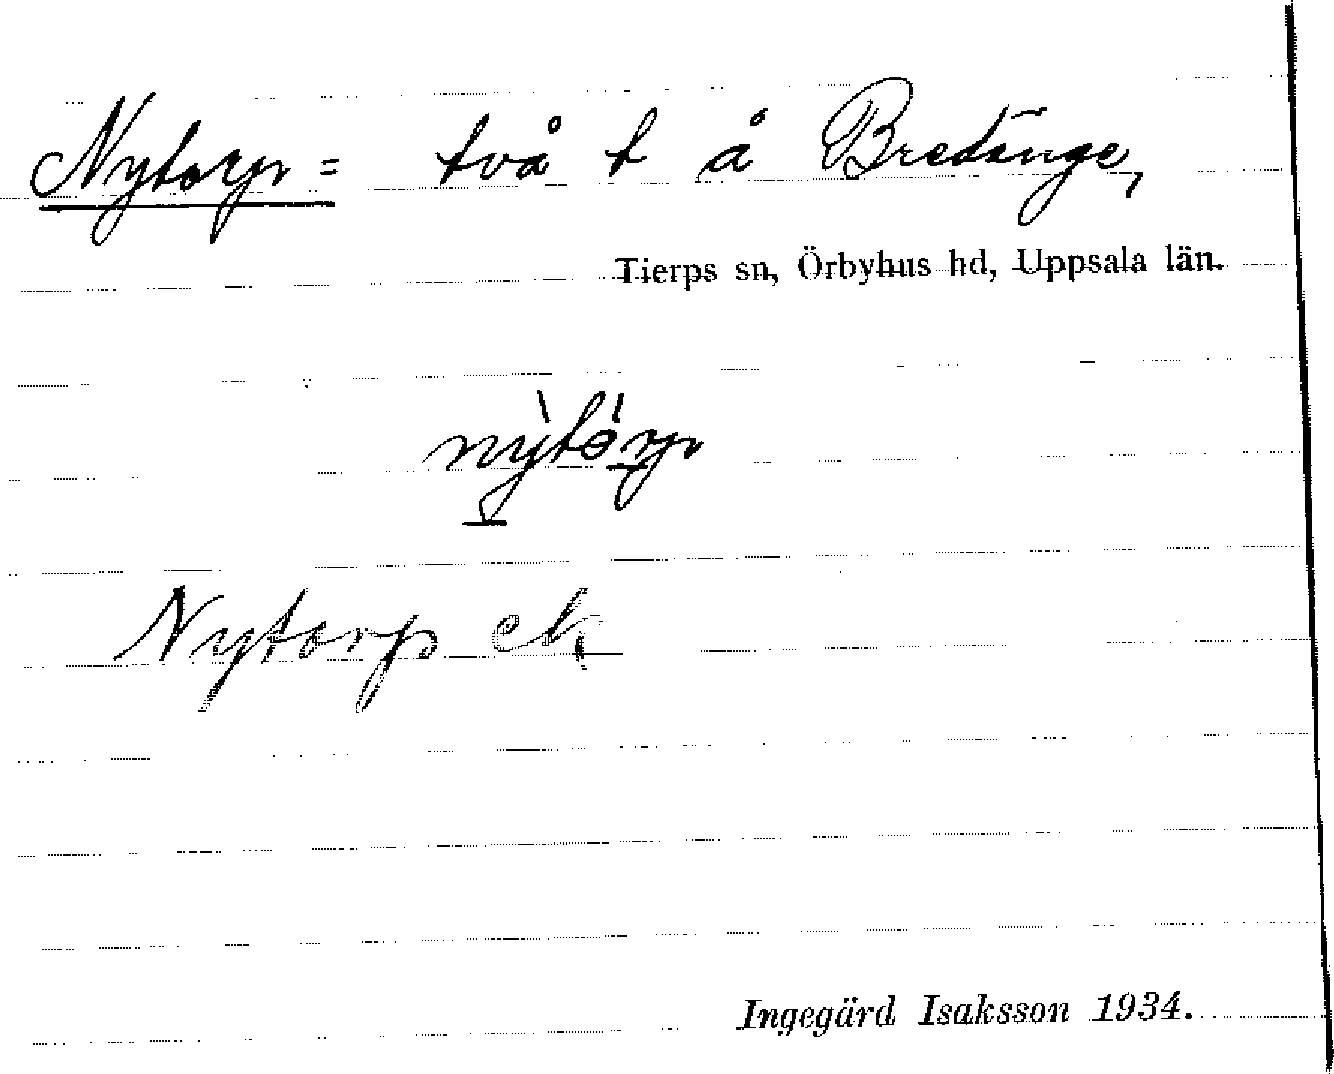 Nytorp = två t å Bredänge,
Tierps sn, Örbyhus hd, Uppsala län.
nỳtórp
Nytorp ek
Ingegärd Isaksson 1934.